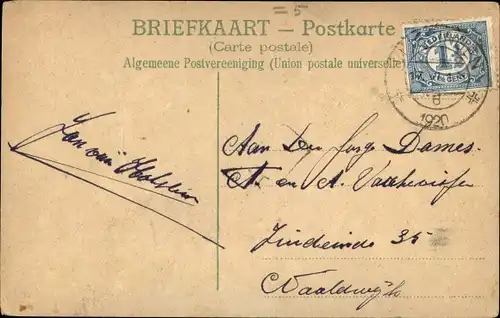 = 5
BRIEFKAART — Postkarte
(Carte postale)
Algemeene Postvereeniging (Union postale universelle)
NEDERLAND
1½
CENT
6
1920
Jan van
Aan Den Jonge Dames.
A. en A.
Zuideinde 35
Naaldwijk